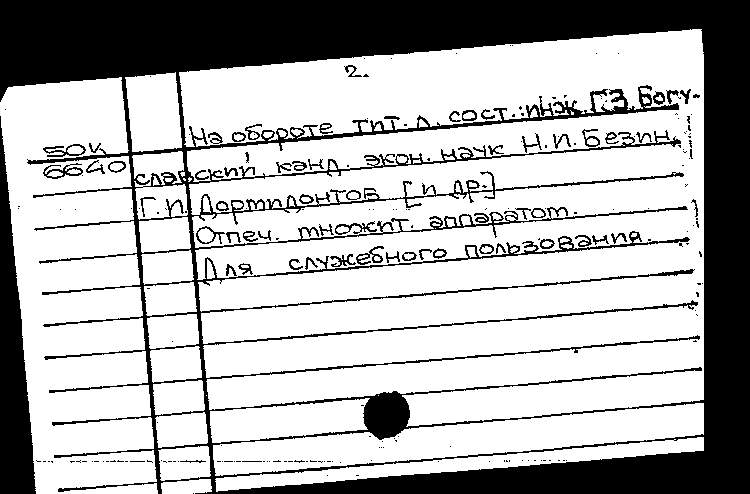 2.
50К
6640
На обороте тит. л. сост.: инж. Г.З. Богу-
славский, канд. экон. наук Н.П. Безин,
Г.П. Дормидонтов [и др.]
Отпеч. множит. аппаратом.
Для служебного пользования.